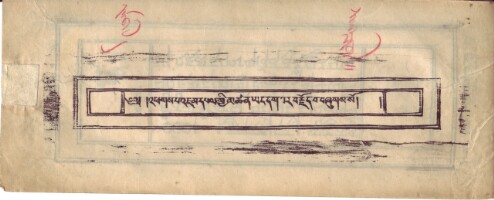 ༄༅། །འཕགས་པ་འཇམ་དཔལ་གྱི་མཚན་ཡང་དག་པར་བརྗོད་པ་བཞུགས་སོ། །